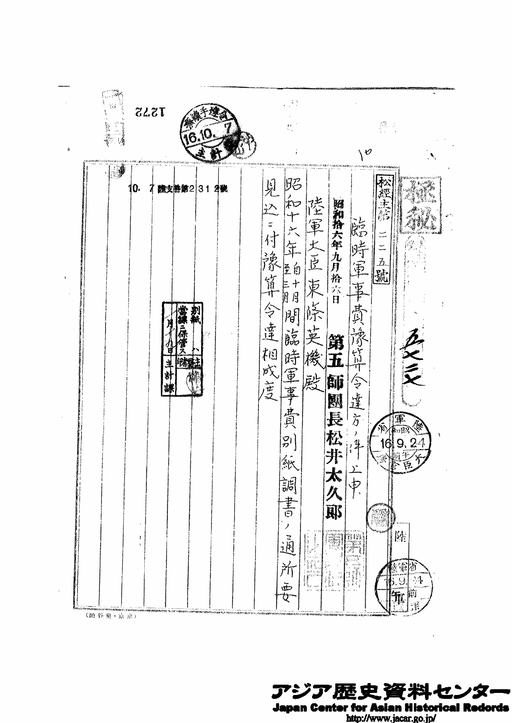 極秘
松経主信二二五號
臨時軍事費豫算令達方ノ件上申
昭和拾六年九月拾六日
第五師團長松井太久郎
陸軍大臣東條英機殿
昭和十六年自十月至三月間臨時軍事費別紙調書ノ通所要
見込ニ付豫算令達相成度
10. 7 陸支普第2312號
別紙ハ
當課ニ保管ス
主計課
1272
16.10.7
主計
陸軍省
16.9.24
大臣官房
陸
16.9.24
午前
アジア歴史資料センター
Japan Center for Asian Historical Records
http://www.jacar.go.jp/